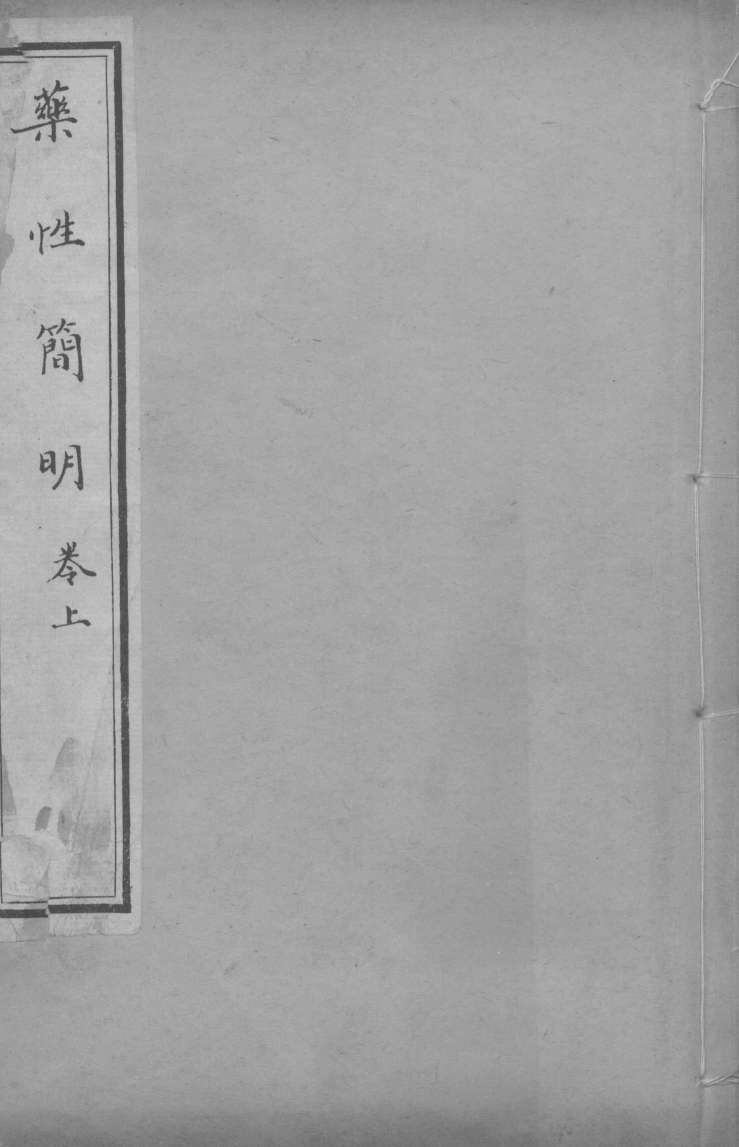 藥性簡明卷上